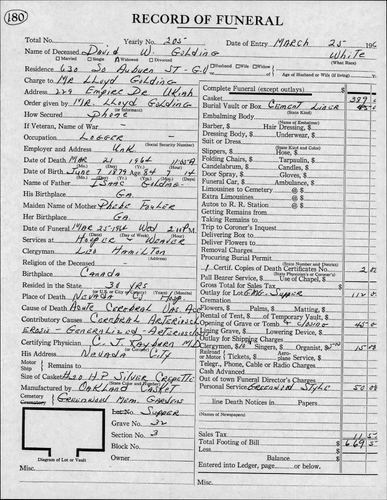 180
RECORD OF FUNERAL
Total No. Yearly No. 205 Date of Entry MARCH 25 196
Name of Deceased David W. Gilding White
(What Race)
Married Single Widowed Divorced Husband Wife Widow
Residence 630 So Auburn ST - G.V. Age of Husband or Wife (if living) Yrs.
Charge to Mr Lloyd Gilding
Address 229 Empire Dr Ukiah
Order given by MR. Lloyd Golding
How Secured Phone
If Veteran, Name of War
Occupation LOGGER
(Social Security Number)
Employer and Address UNK
Date of Death MAR 21 1964 11:05 A
Date of Birth June 7 1879 Age 84 9 14
Name of Father ISAAC Gilding
His Birthplace GA.
Maiden Name of Mother Phebe Fowler
Her Birthplace GA.
Date of Funeral MAR 25-1964 Wed 2:00 P.M.
Services at Hooper Weaver
Clergyman Leo Hamilton
Religion of the Deceased
Birthplace CANADA
Resided in the State 36 yrs
Place of Death NEVADA Co Hosp.
Cause of Death Acute Cerebral Vas. Acc
Contributory Causes Cerebral Arterioscl
erosis - Generalized - Arterioscl
Certifying Physician C. J. Rayburn M.D.
His Address NEVADA City
Motor
Ship Remains to
Size of Casket H.P. Silver Crepette
Manufactured by OAKLAND CASKET
Cemetery
Crematory Greenwood Mem. Gardens
Lot No. Supper
Grave No. 32
Section No. 3
Block No.
Owner
Diagram of Lot or Vault
Misc.
Complete Funeral (except outlays) $
Casket 389
Burial Vault or Box Cement Liner
(State Kind)
Embalming Body
(Name of Embalmer)
Barber, $ Hair Dressing, $
Dressing Body, $ Underwear, $
Suit or Dress
(State Kind and Color)
Slippers, $ Hose, $
Folding Chairs, $ Tarpaulin, $
Candelabrum, $ Candles, $
Door Spray, $ Gloves, $
Funeral Car, $ Ambulance, $
Limousines to Cemetery @ $
Extra Limousines @ $
Autos to R. R. Station @ $
Getting Remains from
Taking Remains to
Trip to Coroner's Inquest
Delivering Box to
Deliver Flowers to
Removal Charges
Procuring Burial Permit
(State Number and District)
1 Certif. Copies of Death Certificates No. 2 00
Pall Bearer Service, $ Use of Chapel, $
Gross Total for Sales Tax
Outlay for Lot GMG - Supper 112
Cremation
Flowers, $ Palms, $ Matting, $
Rental of Tent, $ of Temporary Vault, $
Opening of Grave or Tomb & Closing 45 00
Lining Grave, $ Lowering Device, $
Outlay for Shipping Charges
Clergymen, Singers, $ Organist, 15 00
Railroad
or Motor Tickets, $ Aero-
plane Service, $
Telegr., Phone, Cable or Radio Charges
Cash Advanced
Out of town Funeral Director's Charges
Personal Service Greenwood Style 50 00
line Death Notices in Papers
(Names of Newspapers)
Sales Tax
Total Footing of Bill $ 669
Less $
Balance $
Entered into Ledger, page or below.
Misc.